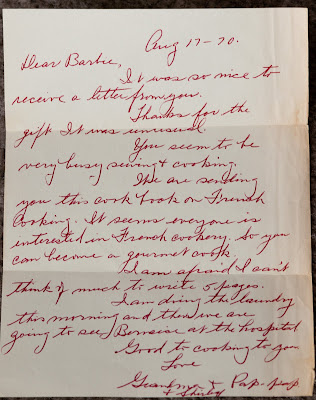 Aug 17-70.
Dear Barbie,
It was so nice to
receive a letter from you.
Thanks for the
gift. It was unusual.
You seem to be
very busy sewing & cooking.
We are sending
you this cook book on French
Cooking. It seems everyone is
interested in French cookery. So you
can become a gourmet cook.
I am afraid I can't
think of much to write 5 pages.
I am doing the laundry
this morning and then we are
going to see Bernice at the hospital
Good to cooking to you
Love
Grandma & Pap-pap
& Shirley